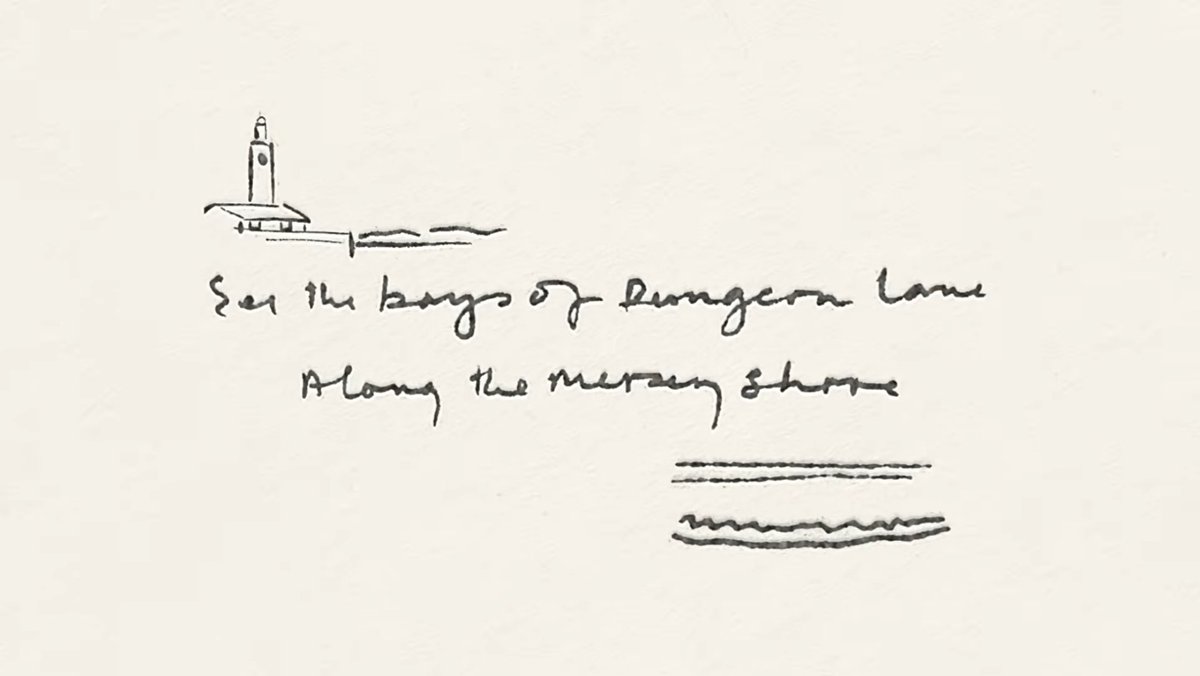 See the boys of Dungeon Lane
Along the Mersey Shore